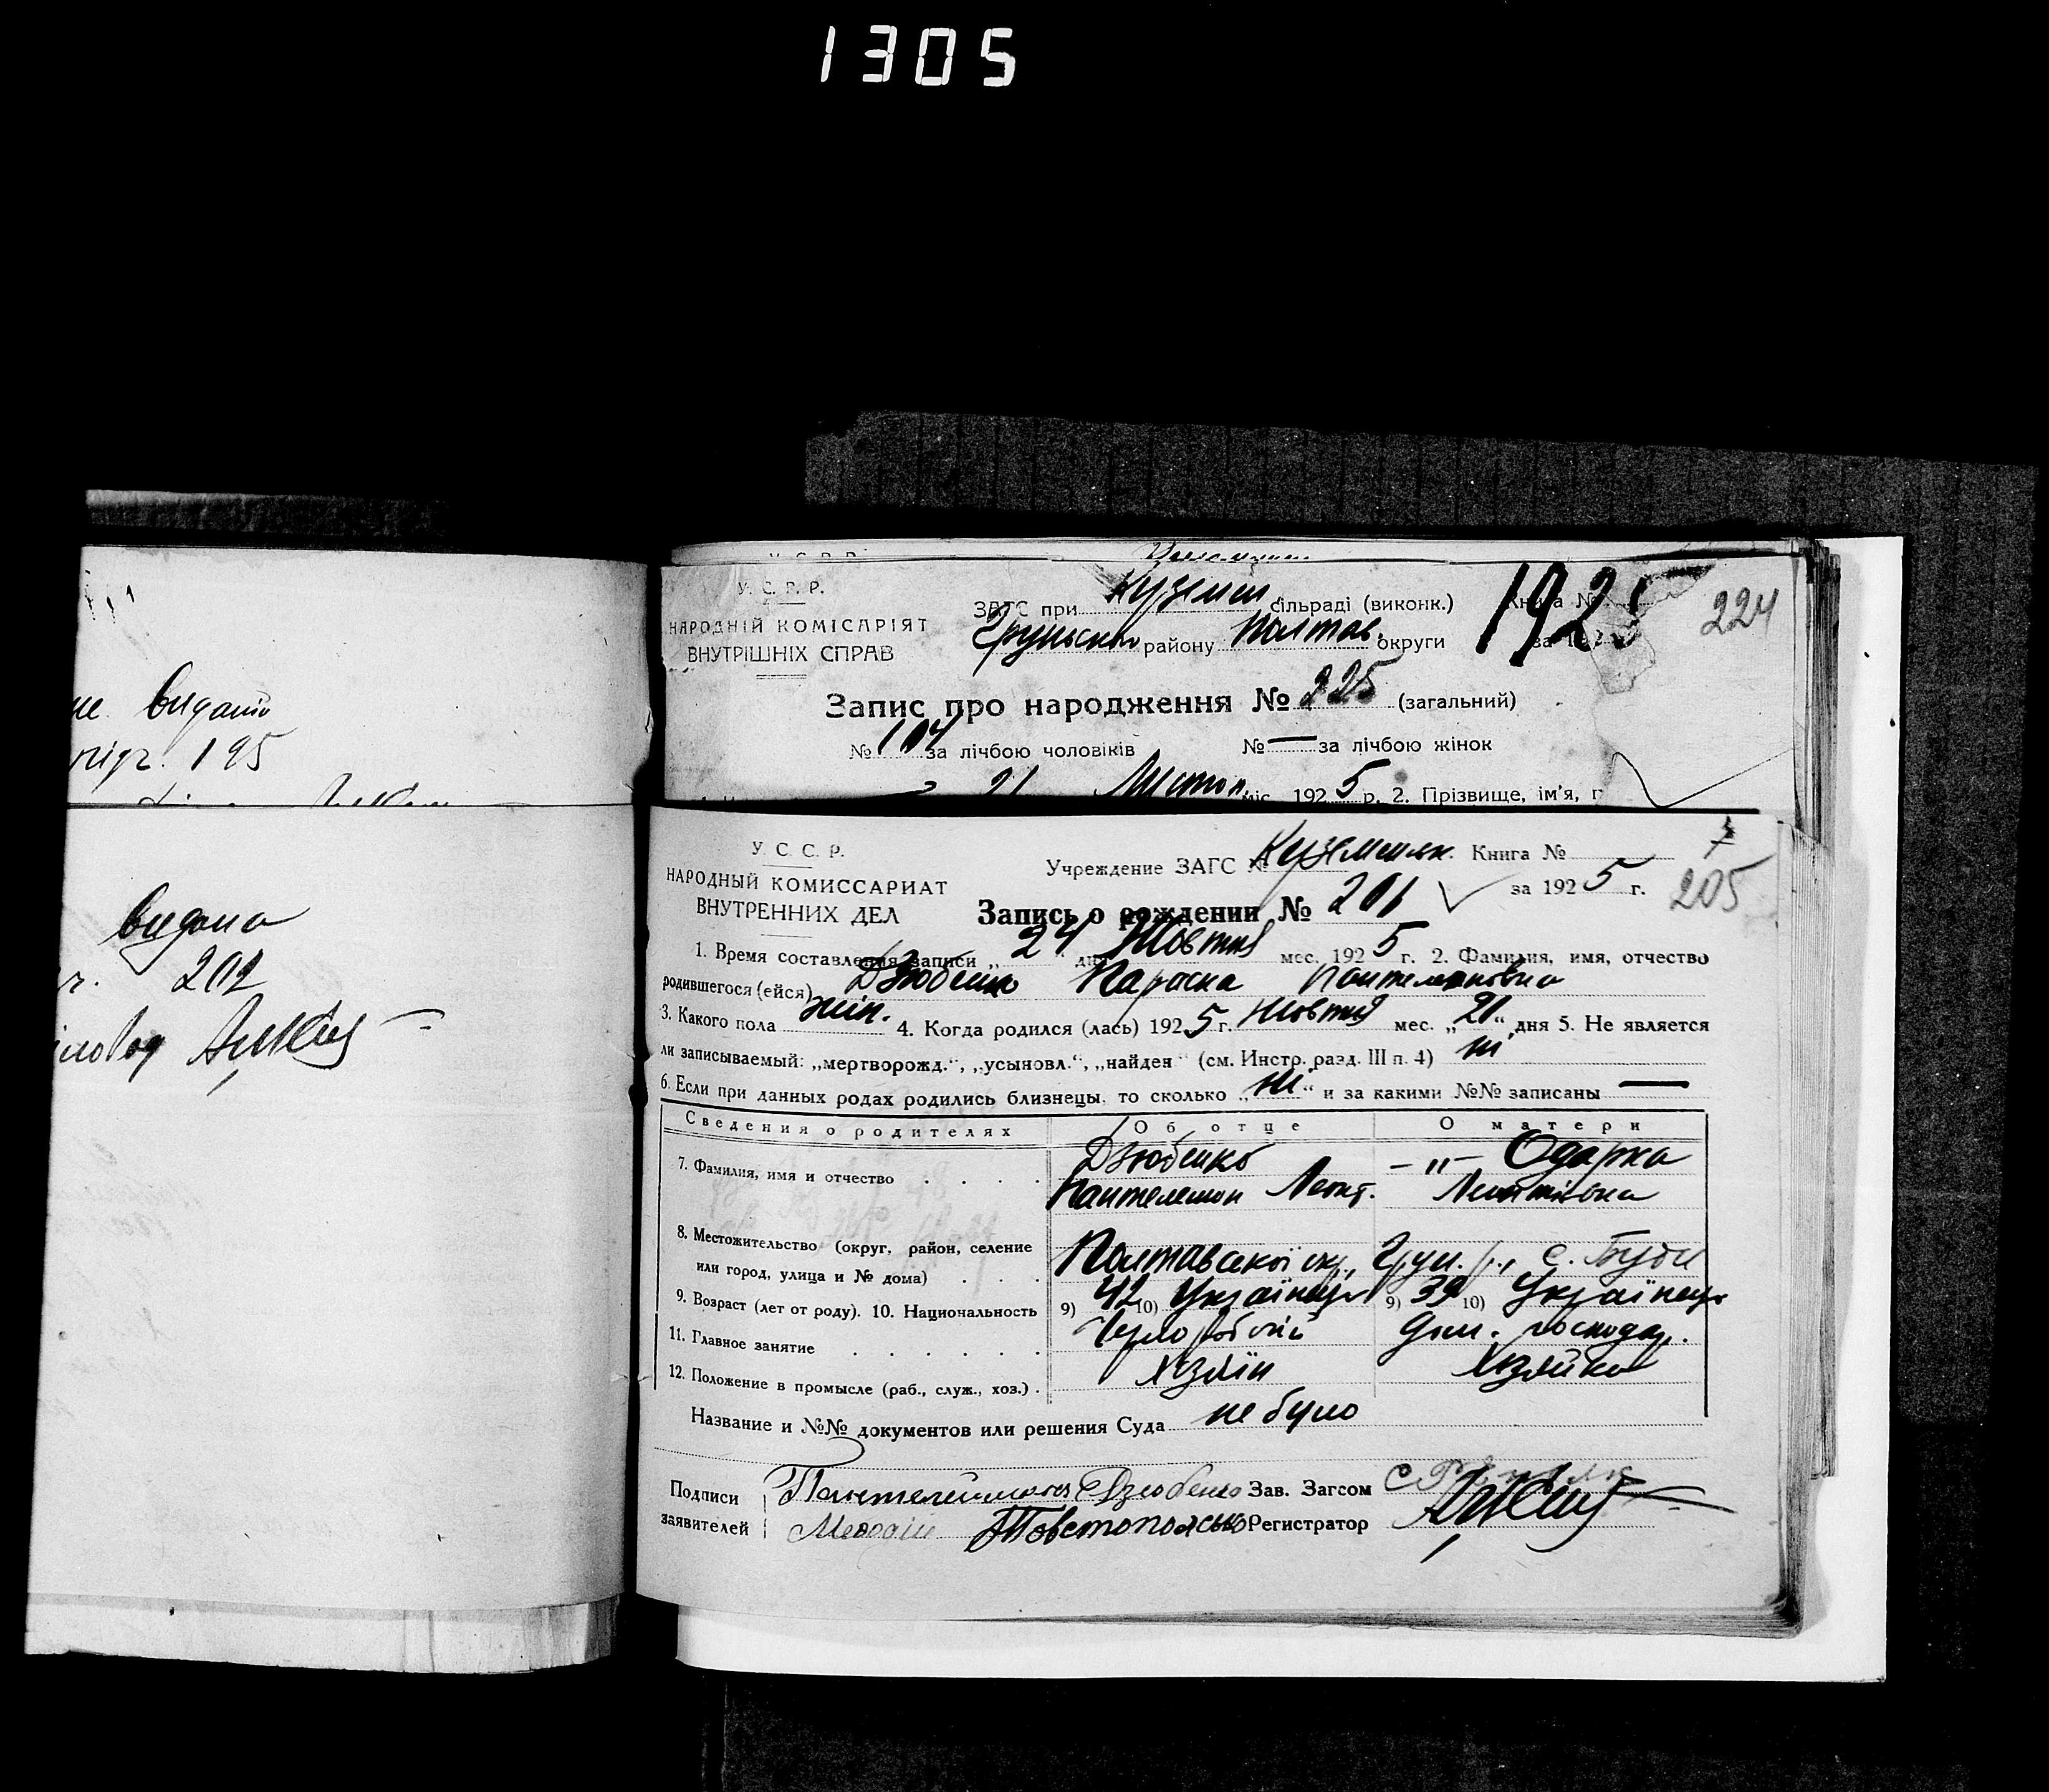 1305
не видано
підч. 195
У. С. Р. Р.
НАРОДНІЙ КОМІСАРІЯТ
ВНУТРІШНІХ СПРАВ
ЗАГС при Куземин. сільраді (виконк.) Книга №
Грунськ району Полтав. округи за 192
1925
224
Запис про народження № 225 (загальний)
№ 104 за лічбою чоловіків № — за лічбою жінок
21 Листоп. міс. 1925 р. 2. Прізвище, ім'я, п
видана
ч. 202
У. С. С. Р.
НАРОДНЫЙ КОМИССАРИАТ
ВНУТРЕННИХ ДЕЛ
Учреждение ЗАГС № Куземинск. Книга №
за 1925 г.
205
Запись о рождении № 201
1. Время составления записи „24 дня Жовтня мес. 1925 г. 2. Фамилия, имя, отчество
родившегося (ейся) Дзюбенко Параска Пантелемоновна
3. Какого пола жін. 4. Когда родился (лась) 1925 г. Жовтня мес. „21“ дня 5. Не является
ли записываемый: „мертворожд.“, „усыновл.“, „найден“ (см. Инстр. разд. III п. 4) ні
6. Если при данных родах родились близнецы, то сколько „ні“ и за какими №№ записаны —
Сведения о родителях Об отце О матери
7. Фамилия, имя и отчество Дзюбенко Пантелемон Леонт. –„– Одарка Леонтіівна
8. Местожительство (округ, район, селение
или город, улица и № дома) Полтавської окр., Грун. р., с. Буди
9. Возраст (лет от роду). 10. Национальность 9) 42 10) Українець 9) 39 10) Українець
11. Главное занятие Хлібороб Дом. господар.
12. Положение в промысле (раб., служ., хоз.) Хзяїн Хзяйка
Название и №№ документов или решения Суда не було
Подписи
заявителей
Пантелеймон Дзюбенко Зав. Загсом
Товстопясько Регистратор